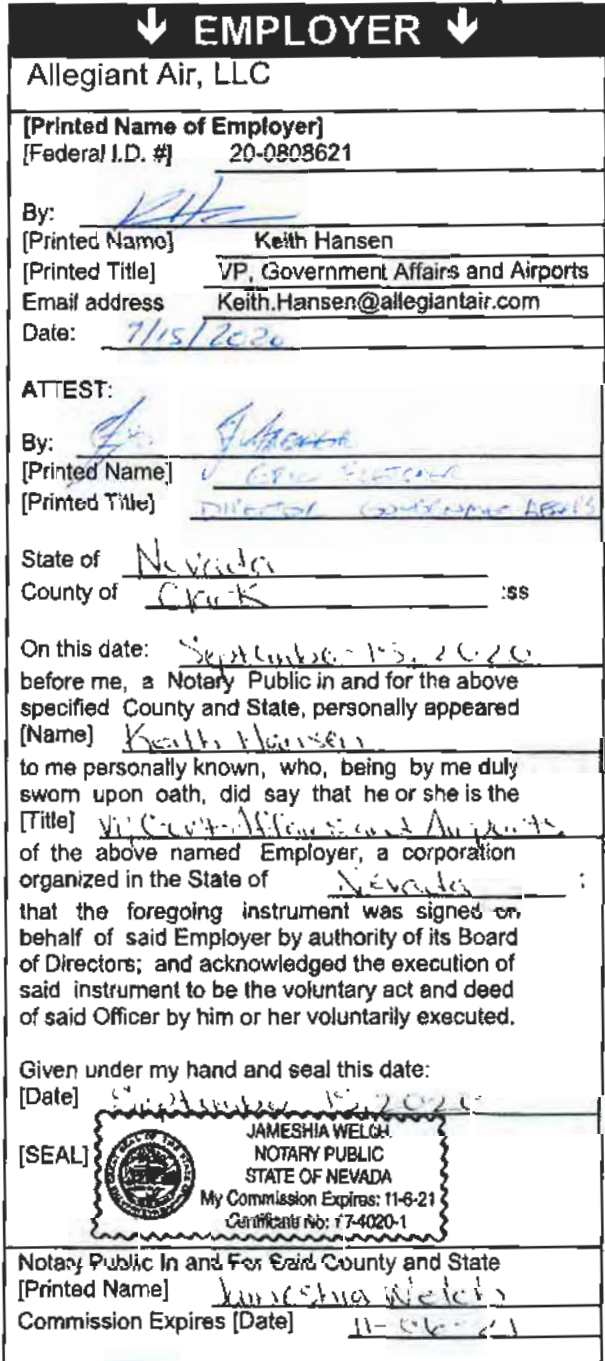 EMPLOYER
Allegiant Air, LLC
[Printed Name of Employer]
[Federal I.D. #] 20-0808621
By:
[Printed Name] Keith Hansen
[Printed Title] VP, Government Affairs and Airports
Email address Keith.Hansen@allegiantair.com
Date: 9/15/2020
ATTEST:
By:
[Printed Name] ERIC FLETCHER
[Printed Title] DIRECTOR GOVERNMENT AFFAIRS
State of Nevada
County of Clark :ss
On this date: September 15, 2020
before me, a Notary Public in and for the above
specified County and State, personally appeared
[Name] Keith Hansen
to me personally known, who, being by me duly
sworn upon oath, did say that he or she is the
[Title] VP, Gov't Affairs and Airports
of the above named Employer, a corporation
organized in the State of Nevada ;
that the foregoing instrument was signed on
behalf of said Employer by authority of its Board
of Directors; and acknowledged the execution of
said instrument to be the voluntary act and deed
of said Officer by him or her voluntarily executed.
Given under my hand and seal this date:
[Date] September 15, 2020
[SEAL]
JAMESHIA WELCH
NOTARY PUBLIC
STATE OF NEVADA
My Commission Expires: 11-6-21
Certificate No: 17-4020-1
Notary Public In and For Said County and State
[Printed Name] Jameshia Welch
Commission Expires [Date] 11-06-21